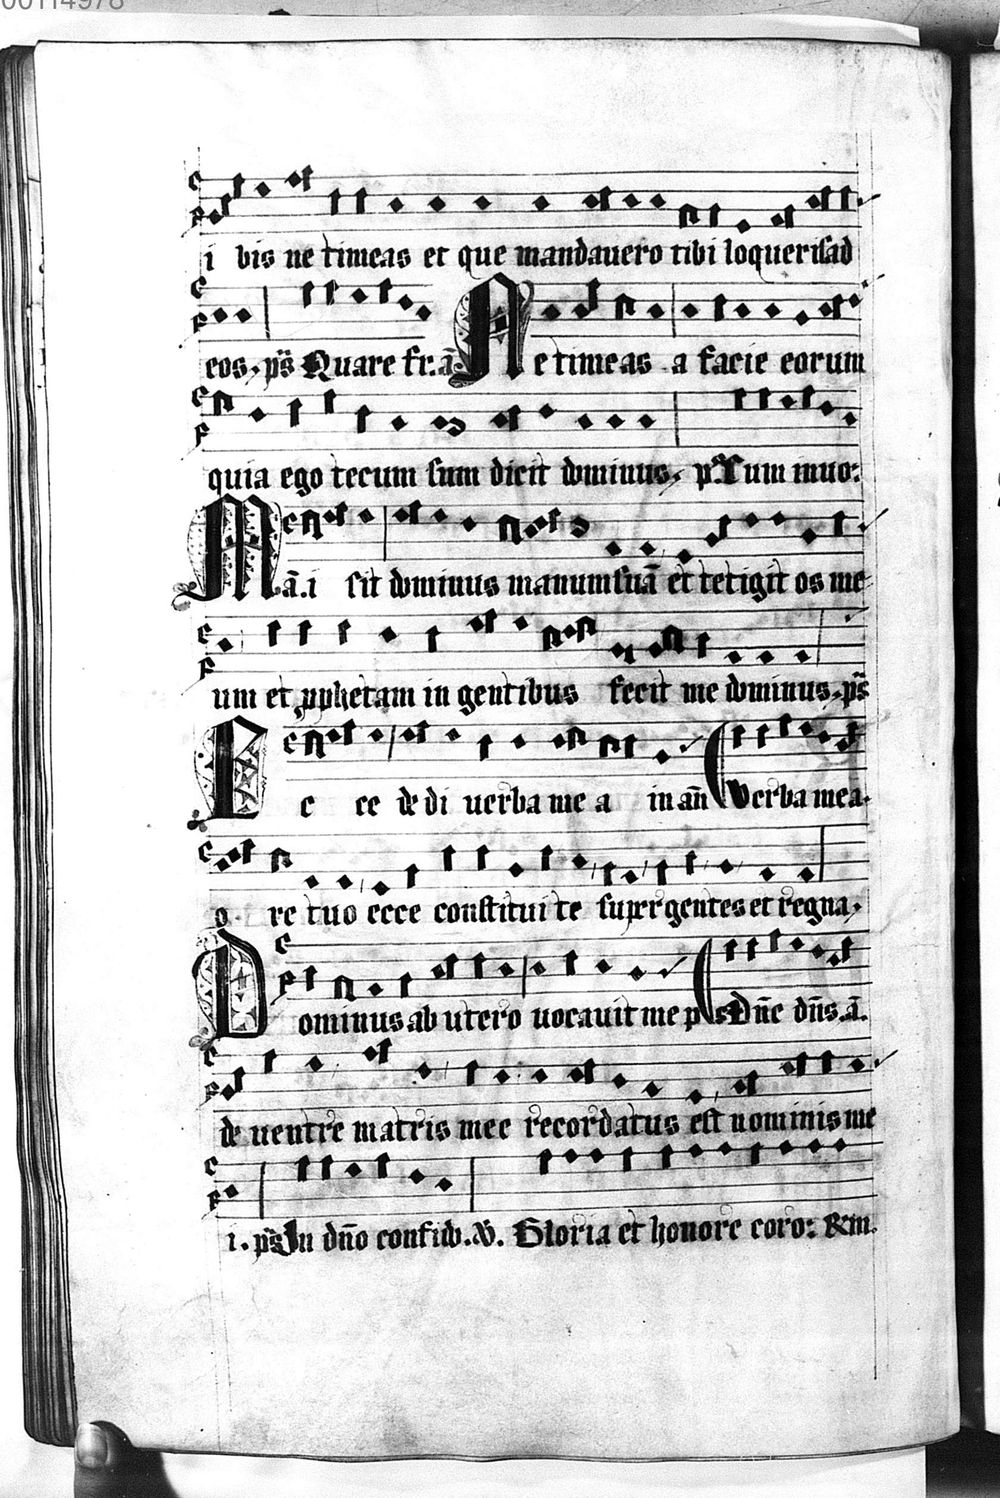 00114978
i bis ne timeas et que mandauero tibi loqueris ad
eos. ps Quare fr. a Ne timeas a facie eorum
quia ego tecum sum dicit dominus. p. Cum inuo:
Mā. i sit dominus manum suā et tetigit os me
um et pphetam in gentibus fecit me dominus. ps
Ec ce de di uerba me a in añ Verba mea.
o. re tuo ecce constitui te super gentes et regna.
Dominus ab utero uocauit me ps Dñe dñs. ā.
de uentre matris mee recordatus est nominis me
i. ps In dño confido. V. Gloria et honore coro: &in.